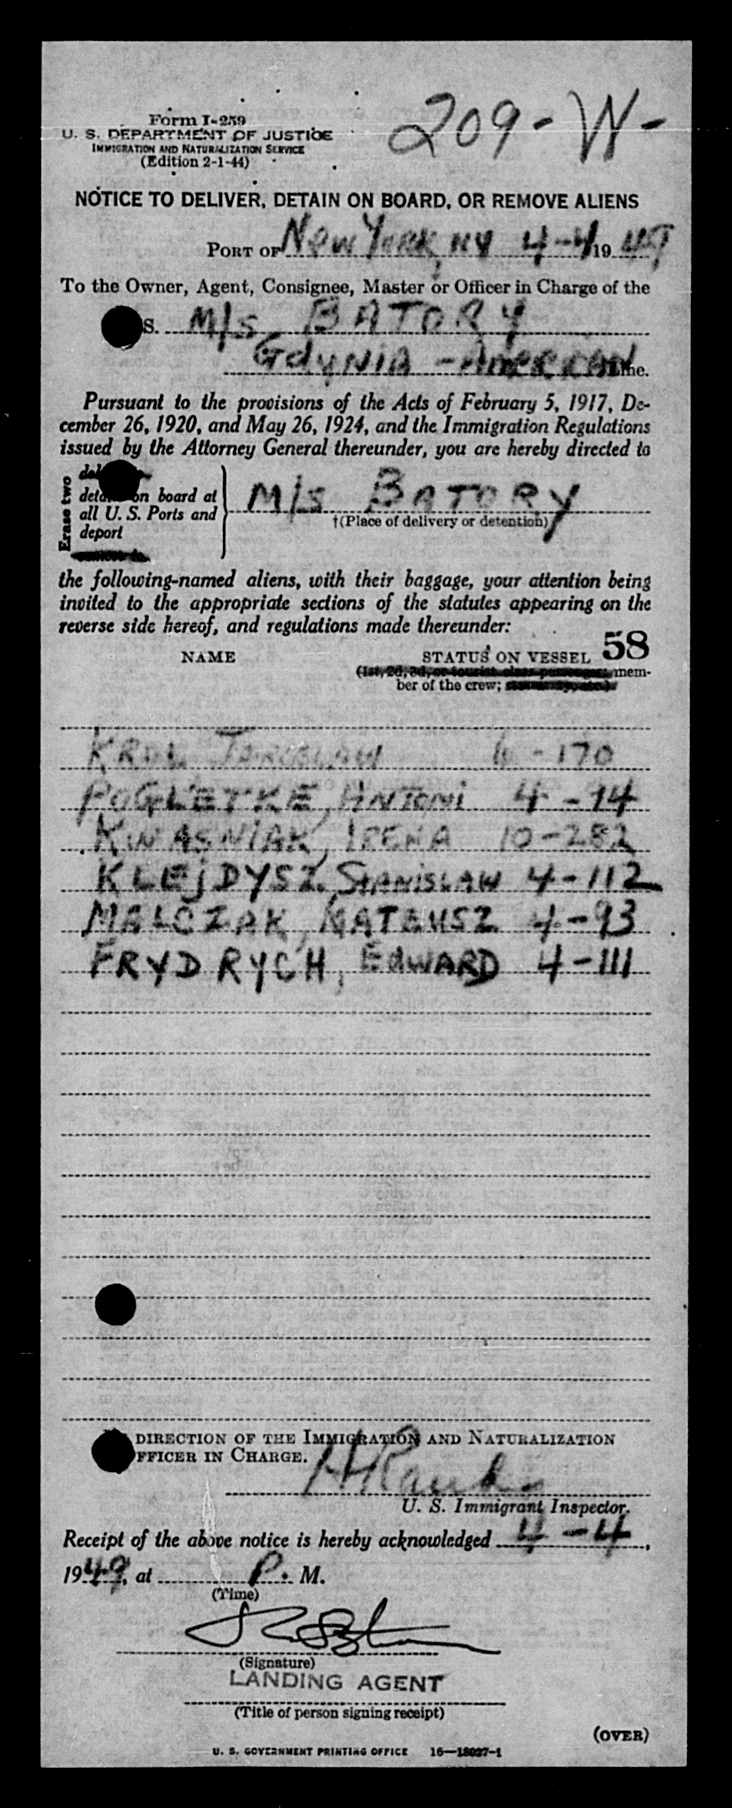 Form I-259
209-W-
U. S. DEPARTMENT OF JUSTICE
IMMIGRATION AND NATURALIZATION SERVICE
(Edition 2-1-44)
NOTICE TO DELIVER, DETAIN ON BOARD, OR REMOVE ALIENS
PORT OF New York, NY 4-4 1949
To the Owner, Agent, Consignee, Master or Officer in Charge of the
S. M/S BATORY
GDYNIA - AMERICAN Line.
Pursuant to the provisions of the Acts of February 5, 1917, De-
cember 26, 1920, and May 26, 1924, and the Immigration Regulations
issued by the Attorney General thereunder, you are hereby directed to
Erase two
detain on board at
all U. S. Ports and
deport
M/S BATORY
†(Place of delivery or detention)
the following-named aliens, with their baggage, your attention being
invited to the appropriate sections of the statutes appearing on the
reverse side hereof, and regulations made thereunder:
58
NAME STATUS ON VESSEL
(1st, 2d, 3d, or tourist class passenger, mem-
ber of the crew;
KROL JAROSLAW 6-170
POGLETKE, ANTONI 4-94
KWASNIAK, IRENA 10-282
KLEJDYSZ, STANISLAW 4-112
MALCZAK, MATEUSZ 4-93
FRYDRYCH, EDWARD 4-111
DIRECTION OF THE IMMIGRATION AND NATURALIZATION
OFFICER IN CHARGE.
U. S. Immigrant Inspector.
Receipt of the above notice is hereby acknowledged 4-4,
1949, at P. M.
(Time)
(Signature)
LANDING AGENT
(Title of person signing receipt)
(OVER)
U. S. GOVERNMENT PRINTING OFFICE 16—18027-1